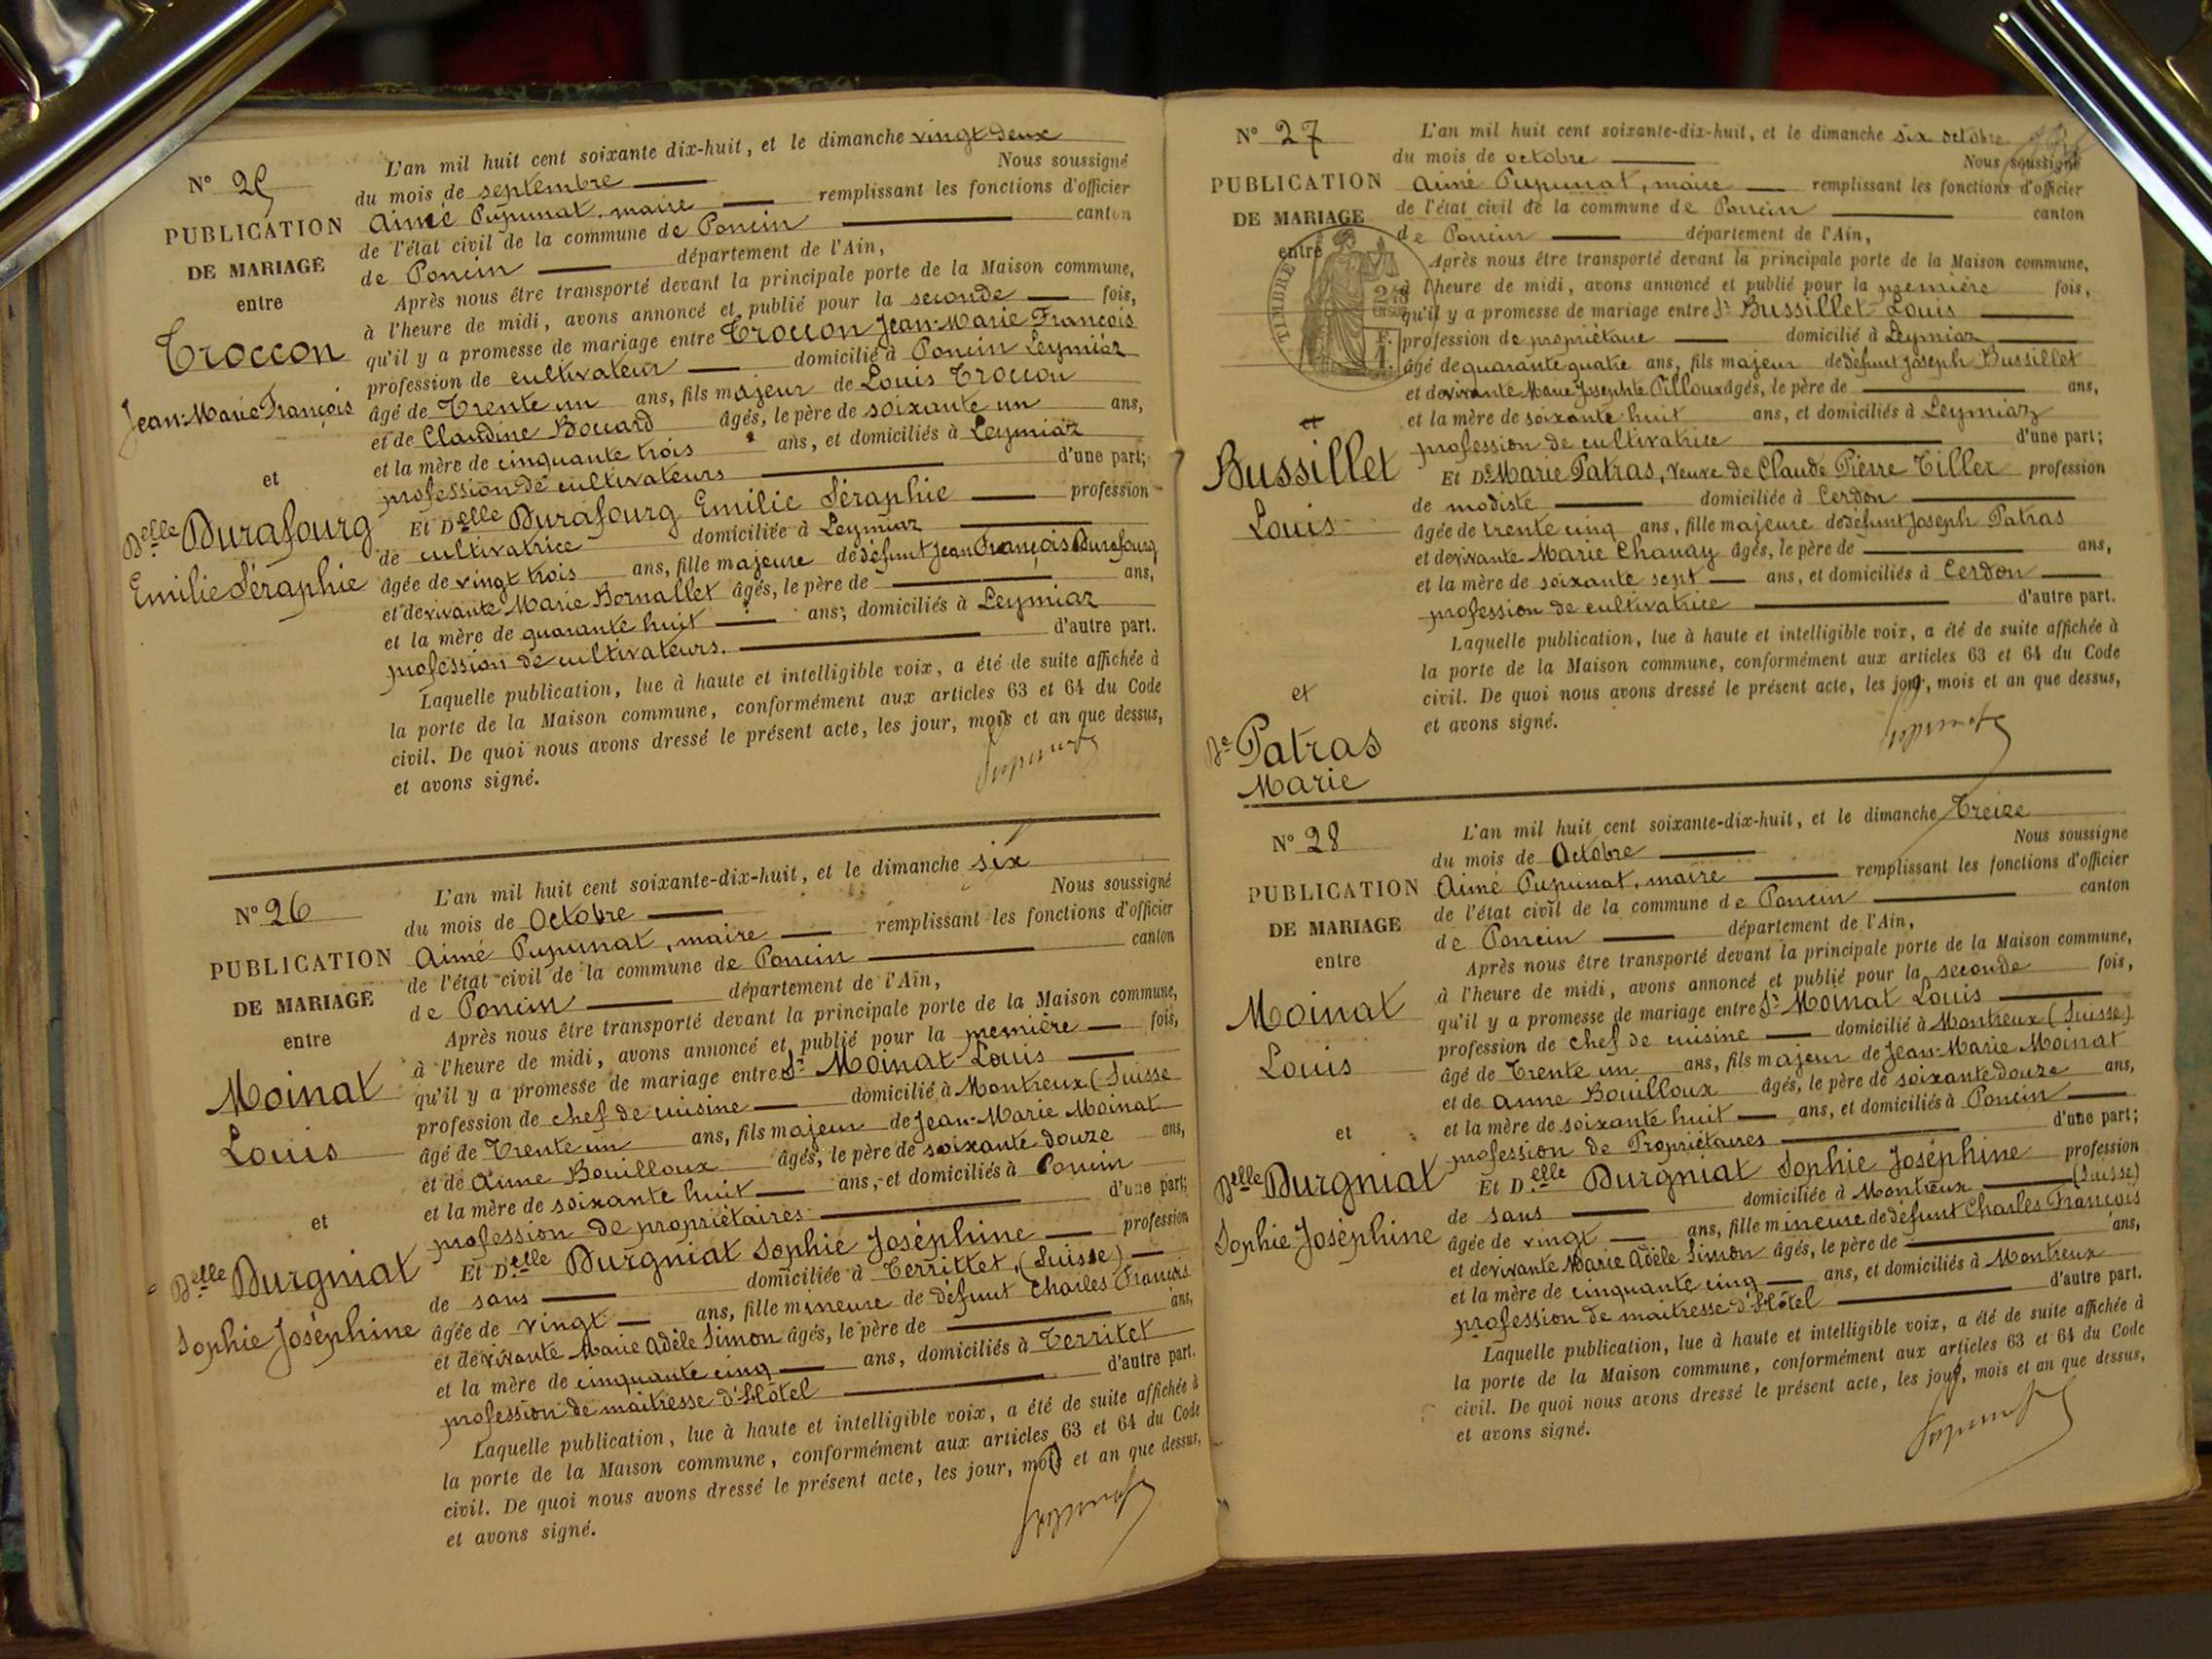 N° 25
PUBLICATION
DE MARIAGE
entre
Troccon
Jean-Marie François
et
Delle Durafourg
Emilie Séraphie
L'an mil huit cent soixante dix-huit, et le dimanche vingt deux
du mois de septembre Nous soussigné
Aimé Pupunat, maire remplissant les fonctions d'officier
de l'état civil de la commune de Poncin canton
de Poncin département de l'Ain,
Après nous être transporté devant la principale porte de la Maison commune,
à l'heure de midi, avons annoncé et publié pour la seconde fois,
qu'il y a promesse de mariage entre Troccon Jean-Marie François
profession de cultivateur domicilié à Poncin Leymiaz
âgé de Trente un ans, fils majeur de Louis Troccon
et de Claudine Bouard âgés, le père de soixante un ans,
et la mère de cinquante trois ans, et domiciliés à Leymiaz
profession de cultivateurs d'une part;
Et Delle Durafourg Emilie Séraphie profession
de cultivatrice domiciliée à Leymiaz
âgée de vingt trois ans, fille majeure de défunt Jean François Durafourg
et de vivante Marie Bornallet âgés, le père de ans,
et la mère de quarante huit ans; domiciliés à Leymiaz
profession de cultivateurs. d'autre part.
Laquelle publication, lue à haute et intelligible voix, a été de suite affichée à
la porte de la Maison commune, conformément aux articles 63 et 64 du Code
civil. De quoi nous avons dressé le présent acte, les jour, mois et an que dessus,
et avons signé.
Pupunat
N° 26
PUBLICATION
DE MARIAGE
entre
Moinat
Louis
et
Delle Durgniat
Sophie Joséphine
L'an mil huit cent soixante-dix-huit, et le dimanche six
du mois de Octobre Nous soussigné
Aimé Pupunat, maire remplissant les fonctions d'officier
de l'état civil de la commune de Poncin canton
de Poncin département de l'Ain,
Après nous être transporté devant la principale porte de la Maison commune,
à l'heure de midi, avons annoncé et publié pour la première fois,
qu'il y a promesse de mariage entre Sr Moinat Louis
profession de chef de cuisine domicilié à Montreux (Suisse
âgé de Trente un ans, fils majeur de Jean-Marie Moinat
et de Anne Bouilloux âgés, le père de soixante douze ans,
et la mère de soixante huit ans, et domiciliés à Poncin
profession de propriétaires d'une part;
Et Delle Durgniat Sophie Joséphine profession
de sans domiciliée à Territtet, (Suisse)
âgée de vingt ans, fille mineure de défunt Charles François
et de vivante Marie Adèle Simon âgés, le père de ans,
et la mère de cinquante cinq ans, domiciliés à Territet
profession de maitresse d'Hôtel d'autre part.
Laquelle publication, lue à haute et intelligible voix, a été de suite affichée à
la porte de la Maison commune, conformément aux articles 63 et 64 du Code
civil. De quoi nous avons dressé le présent acte, les jour, mois et an que dessus,
et avons signé.
Pupunat
N° 27
PUBLICATION
DE MARIAGE
entre
et
Bussillet
Louis
et
De Patras
Marie
TIMBRE
L'an mil huit cent soixante-dix-huit, et le dimanche six octobre
du mois de octobre Nous soussigné
Aimé Pupunat, maire remplissant les fonctions d'officier
de l'état civil de la commune de Poncin canton
de Poncin département de l'Ain,
Après nous être transporté devant la principale porte de la Maison commune,
à l'heure de midi, avons annoncé et publié pour la première fois,
qu'il y a promesse de mariage entre Sr Bussillet Louis
profession de propriétaire domicilié à Leymiaz
âgé de quarante quatre ans, fils majeur de défunt Joseph Bussillet
et de vivante Marie Josephte Pilloux âgés, le père de ans,
et la mère de soixante huit ans, et domiciliés à Leymiaz
profession de cultivatrice d'une part;
Et De Marie Patras, Veuve de Claude Pierre Tiller profession
de modiste domiciliée à Cerdon
âgée de trente cinq ans, fille majeure de défunt Joseph Patras
et de vivante Marie Chanay âgés, le père de ans,
et la mère de soixante sept ans, et domiciliés à Cerdon
profession de cultivatrice d'autre part.
Laquelle publication, lue à haute et intelligible voix, a été de suite affichée à
la porte de la Maison commune, conformément aux articles 63 et 64 du Code
civil. De quoi nous avons dressé le présent acte, les jour, mois et an que dessus,
et avons signé.
Pupunat
N° 28
PUBLICATION
DE MARIAGE
entre
Moinat
Louis
et
Delle Durgniat
Sophie Joséphine
L'an mil huit cent soixante-dix-huit, et le dimanche Treize
du mois de Octobre Nous soussigné
Aimé Pupunat, maire remplissant les fonctions d'officier
de l'état civil de la commune de Poncin canton
de Poncin département de l'Ain,
Après nous être transporté devant la principale porte de la Maison commune,
à l'heure de midi, avons annoncé et publié pour la seconde fois,
qu'il y a promesse de mariage entre Sr Moinat Louis
profession de chef de cuisine domicilié à Montreux (Suisse)
âgé de Trente un ans, fils majeur de Jean-Marie Moinat
et de Anne Bouilloux âgés, le père de soixante douze ans,
et la mère de soixante huit ans, et domiciliés à Poncin
profession de Propriétaires d'une part;
Et Delle Durgniat Sophie Joséphine profession
de sans domiciliée à Montreux (Suisse)
âgée de vingt ans, fille mineure de défunt Charles François
et de vivante Marie Adèle Simon âgés, le père de ans,
et la mère de cinquante cinq ans, et domiciliés à Montreux
profession de maitresse d'Hôtel d'autre part.
Laquelle publication, lue à haute et intelligible voix, a été de suite affichée à
la porte de la Maison commune, conformément aux articles 63 et 64 du Code
civil. De quoi nous avons dressé le présent acte, les jour, mois et an que dessus,
et avons signé.
Pupunat